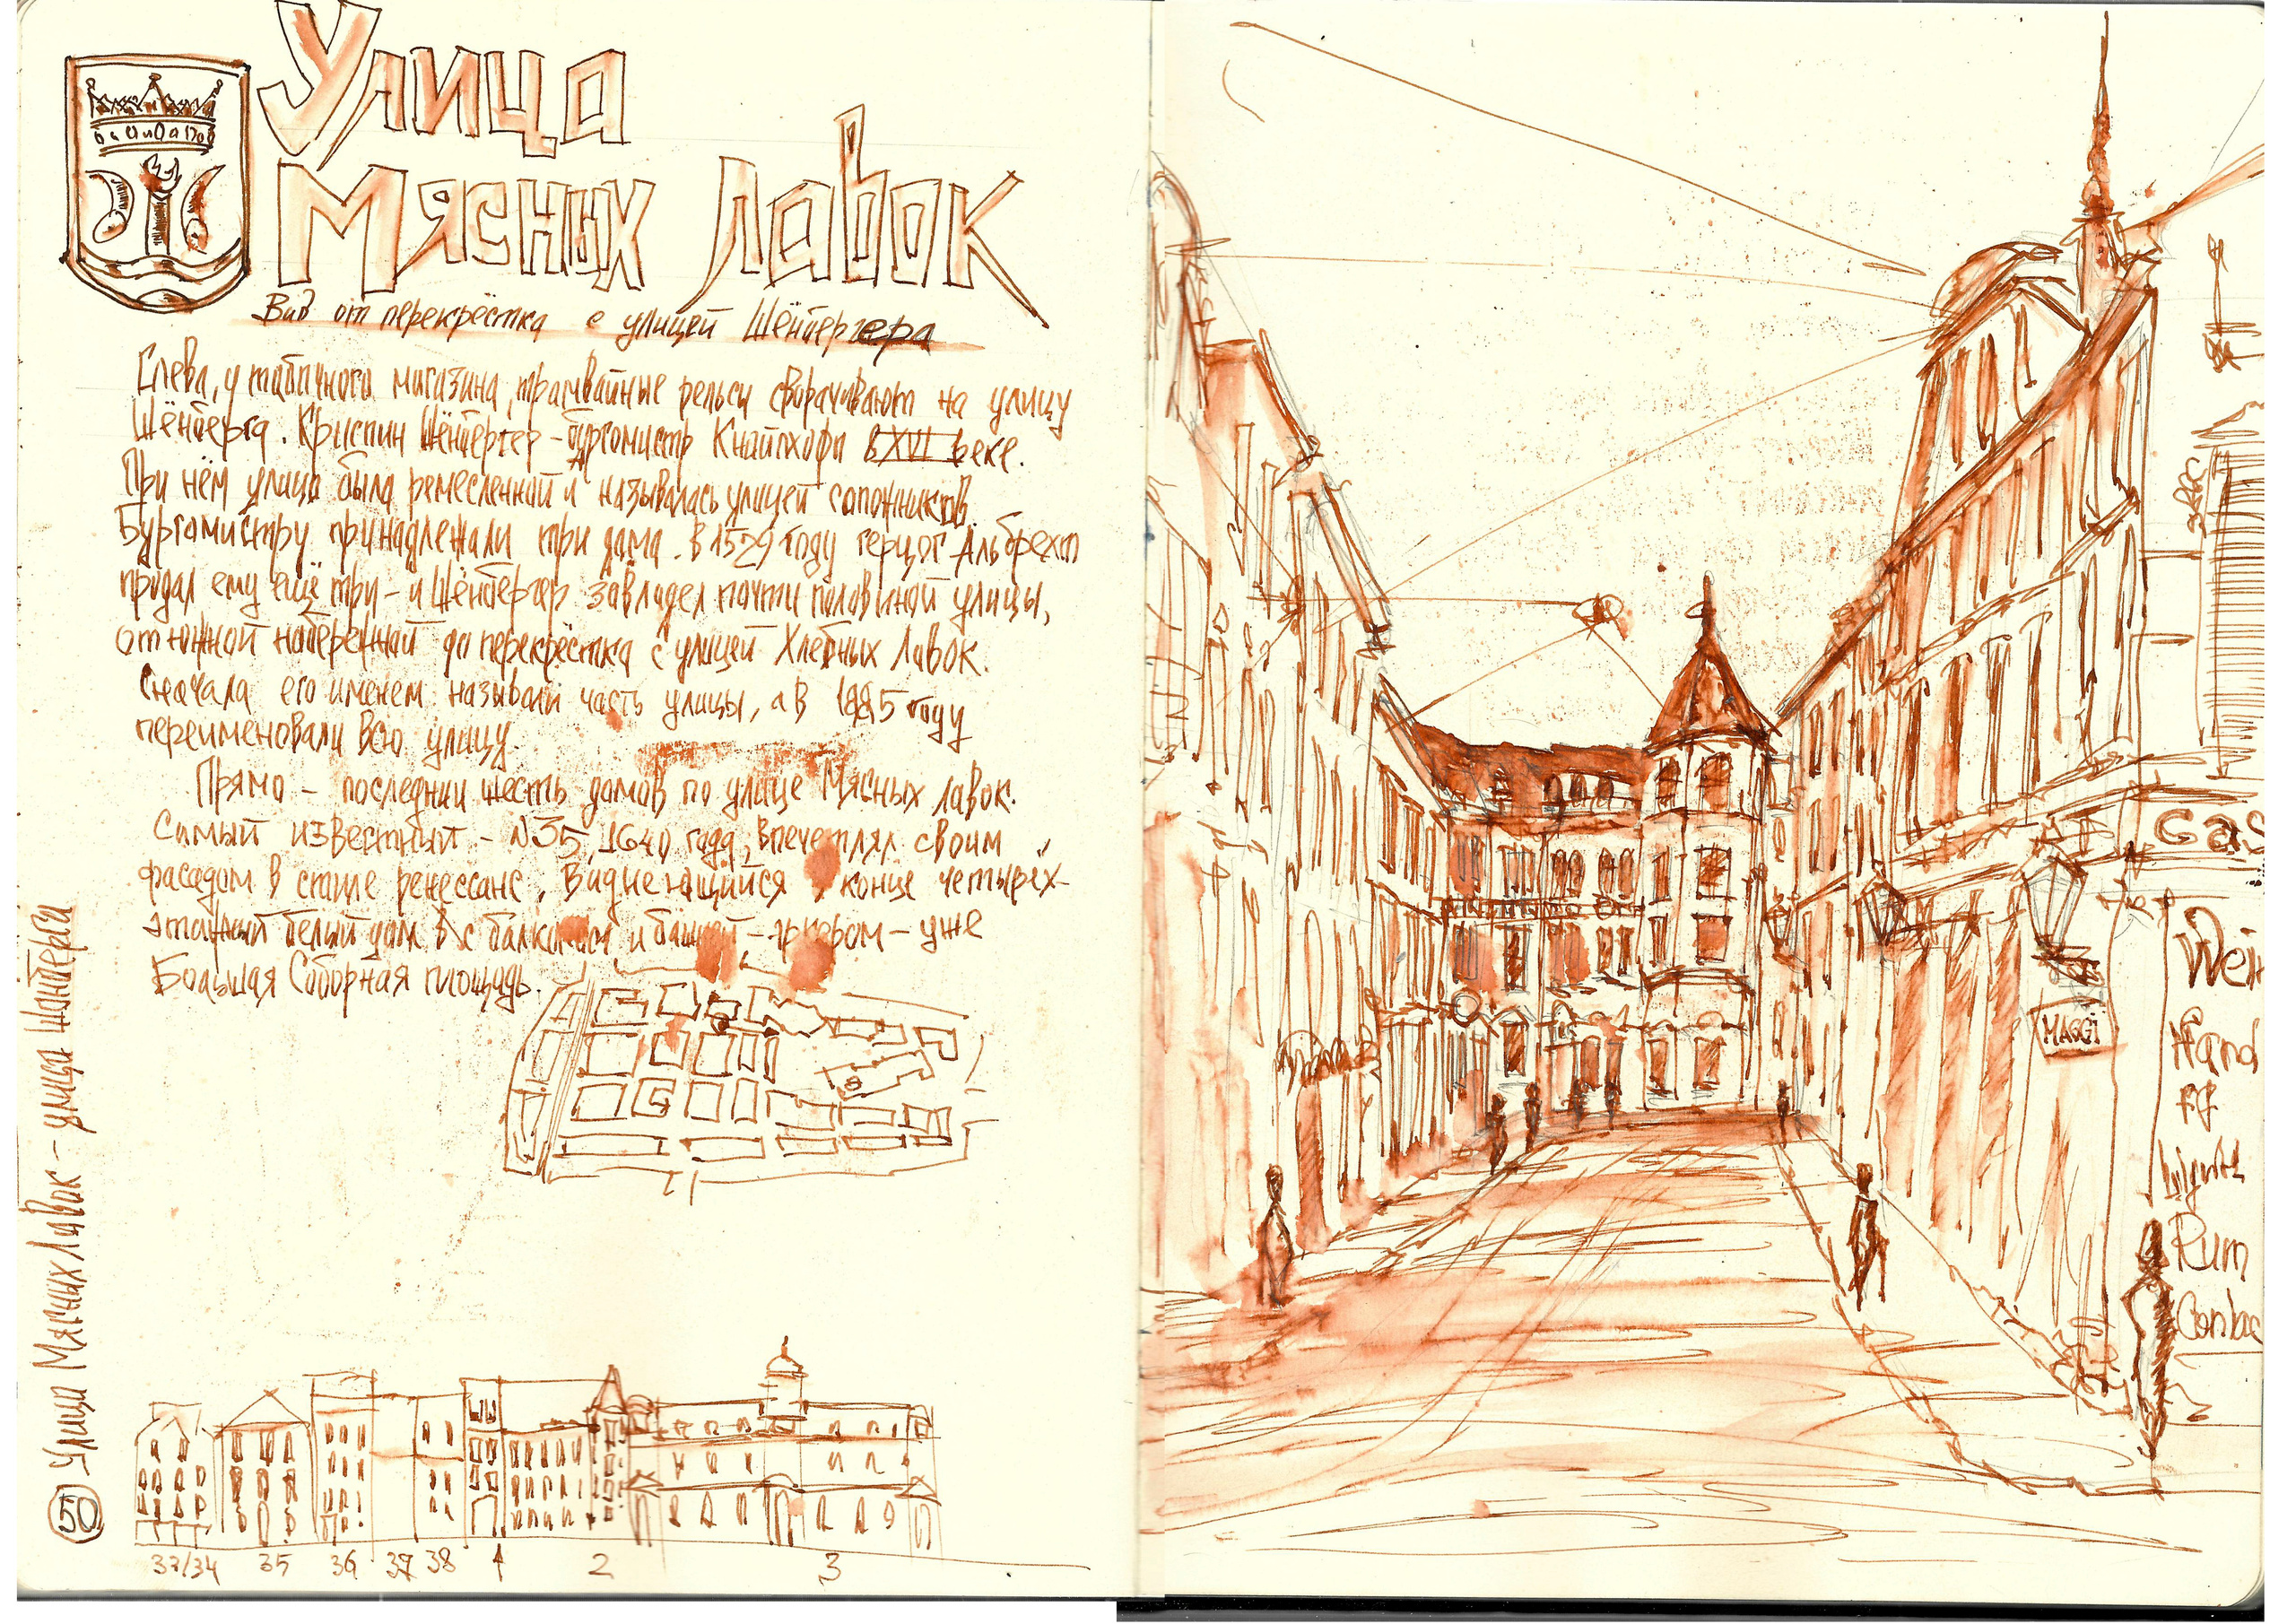 Улица
Мясных Лавок
Вид от перекрёстка с улицей Шёнбергера
Слева, у табачного магазина, трамвайные рельсы сворачивают на улицу
Шёнберга. Криспин Шёнбергер - бургомистр Кнайпхофа в XVI веке.
При нём улица была ремесленной и называлась улицей сапожников.
Бургомистру принадлежали три дома. в 1529 году герцог Альбрехт
продал ему ещё три - и Шёнбергер завладел почти половиной улицы,
от южной набережной до перекрёстка с улицей Хлебных Лавок.
Сначала его именем называли часть улицы, а в 1885 году
переименовали всю улицу.
Прямо - последнии шесть домов по улице Мясных лавок.
Самый известный - N35, 1640 года, впечетлял своим
фасадом в стиле ренессанс. Виднеющийся в конце четырёх-
этажный белый дом с балконом и башней - эркером - уже
Большая Соборная площадь.
Улица Мясных Лавок - улица Шонберга
50
33/34 35 36 37 38 1 2 3
Gas
Wein
Hand
MAGGI
Rum